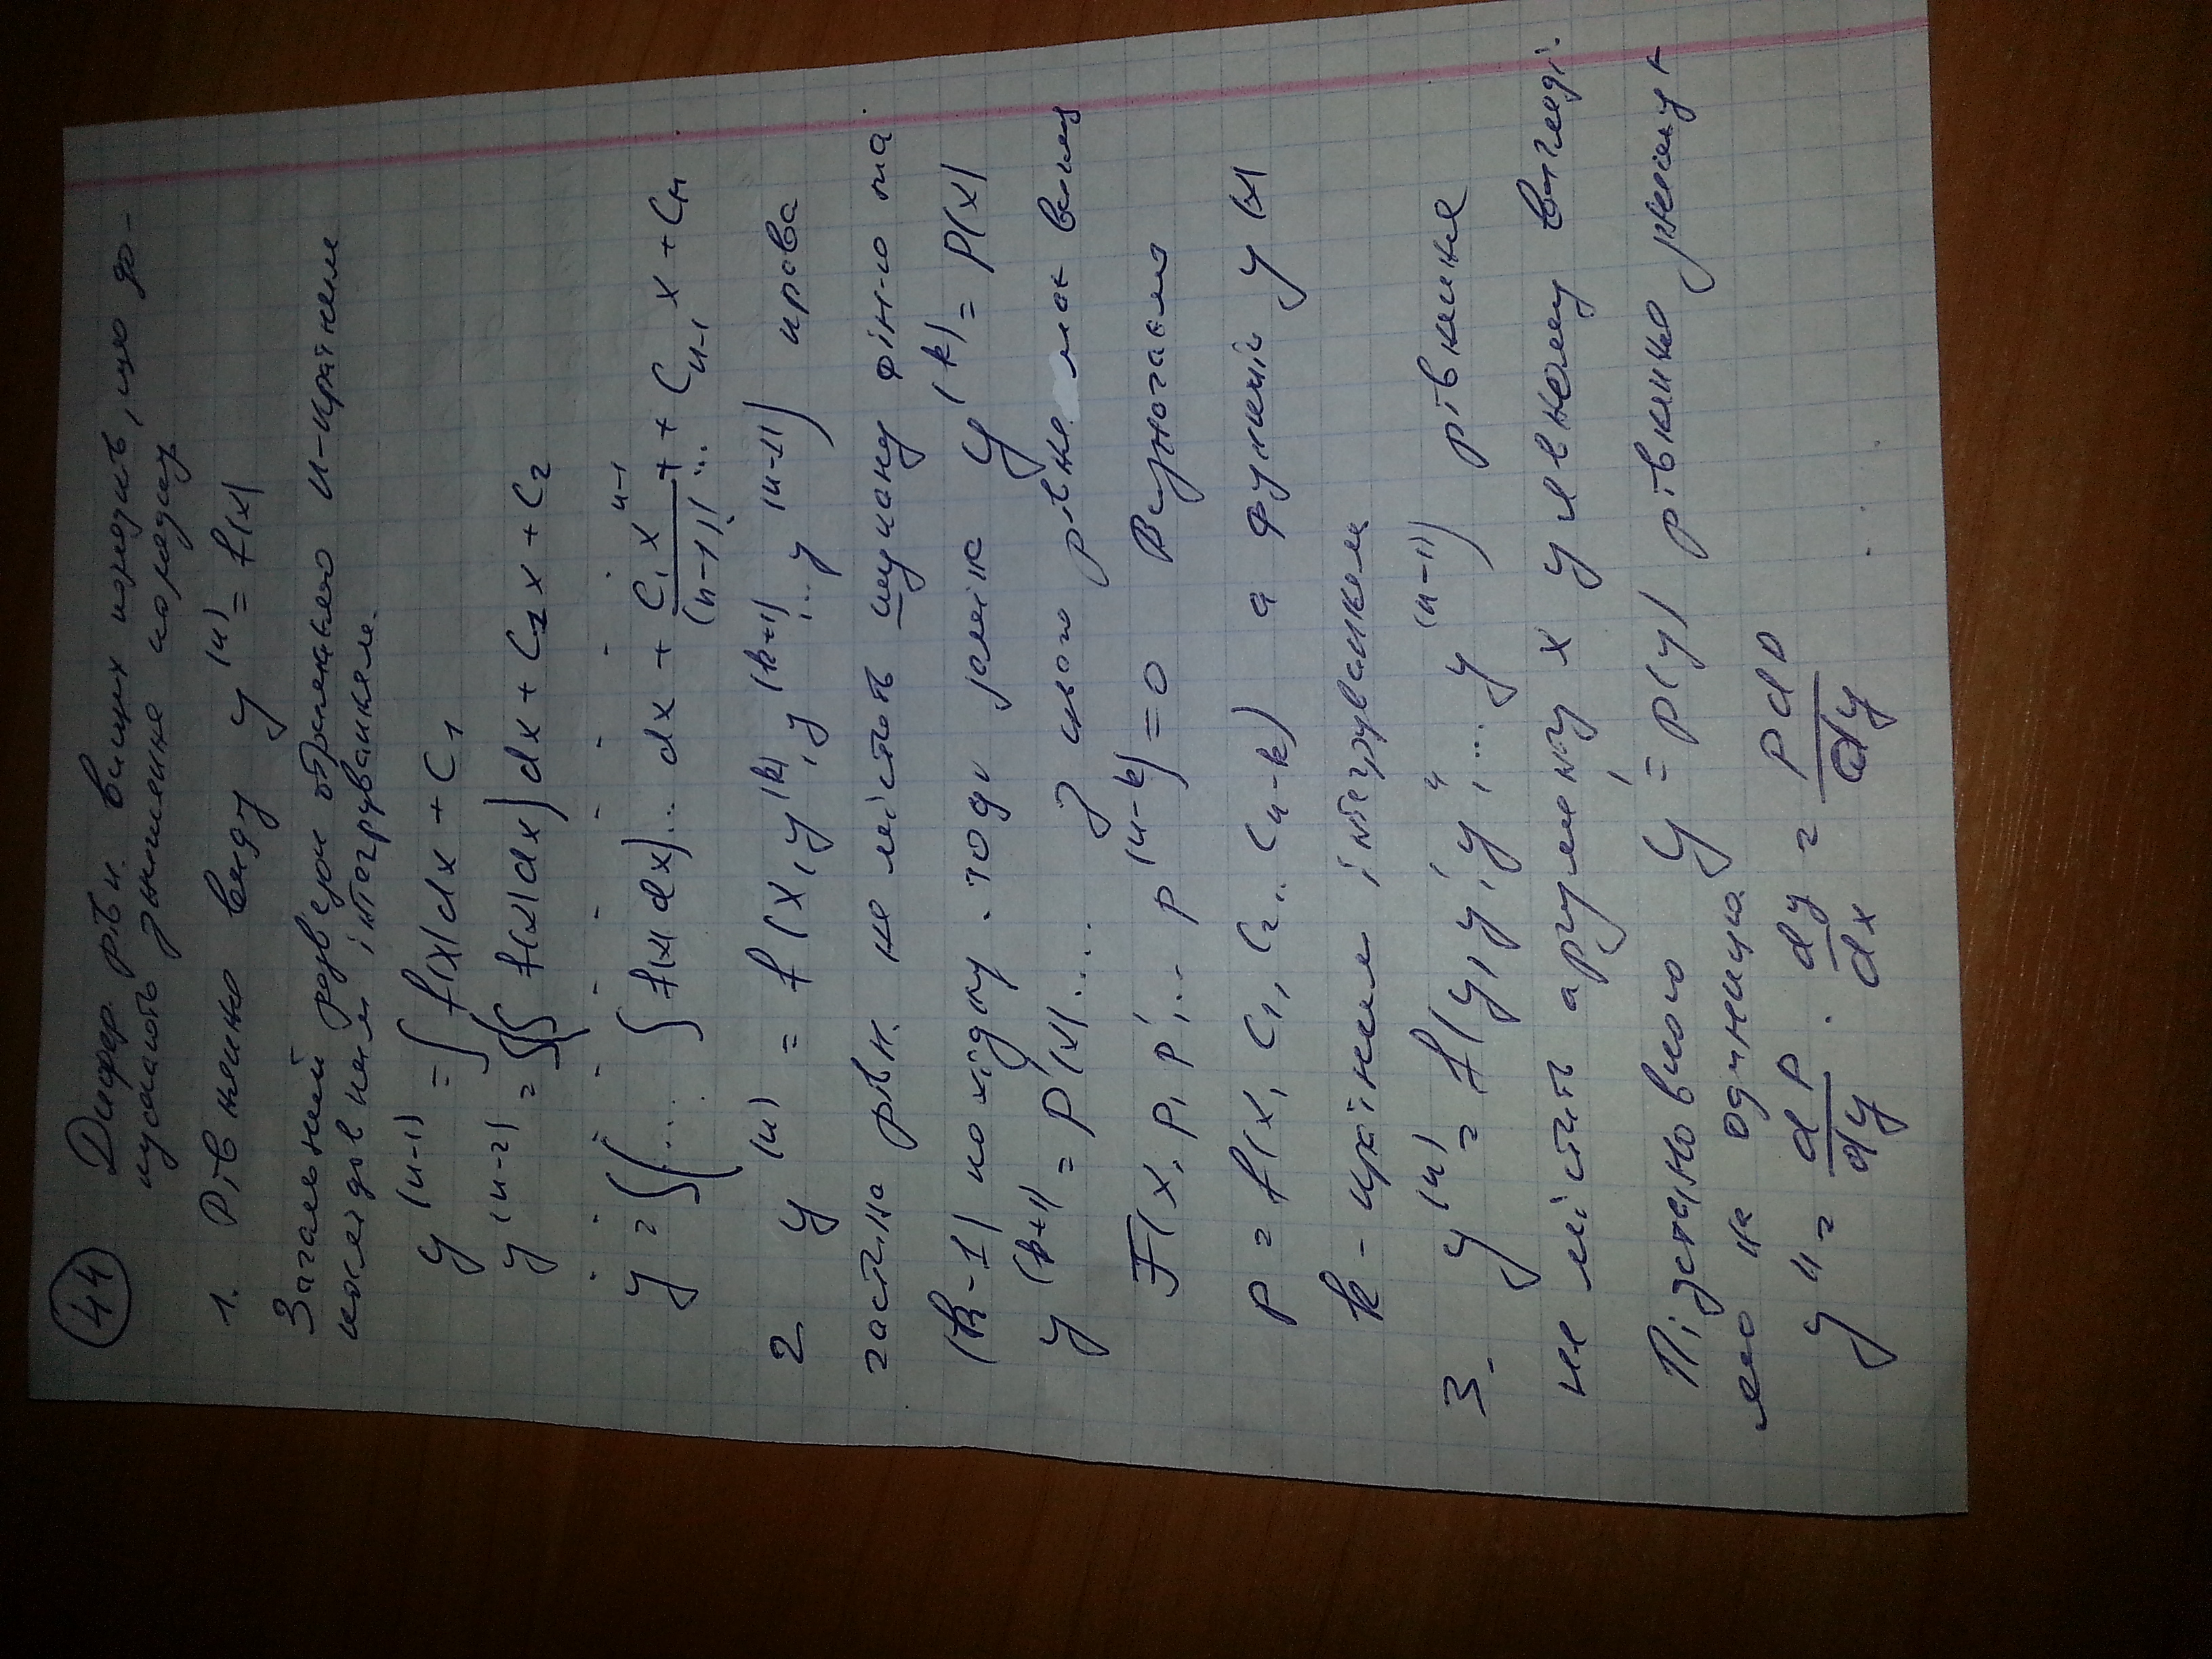 44 Дифер. рівн. вищих порядків, що до-
пускають зниження порядку
1. Рівняння виду y^(n) = f(x)
Загальний розв'язок отримаємо n-кратним
послідовним інтегруванням.
y^(n-1) = ∫ f(x) dx + C₁
y^(n-2) = ∫(∫ f(x) dx) dx + C₁x + C₂
- - - - - - - - - -
y = ∫(... ∫ f(x) dx)... dx + C₁x^(n-1)/(n-1)! + ... + C_(n-1) x + C_n
2 y^(n) = f(x, y^(k), y^(k+1), .. y^(n-1)) права
частина рівн. не містить шукану фін-ю та
(k-1) похідну. тоді заміна y^(k) = P(x)
y^(k+1) = P'(x) .... з цього рівня має вигляд
F(x, p, p', .. p^(n-k)) = 0 Визначаємо
p = f(x, C₁, C₂, .. C_(n-k)) а функцію y(x)
k-кратним інтегруванням
3. y^(n) = f(y, y', y'', ... y^(n-1)) рівняння
не містить аргументу x у явному вигляді.
Підстановкою y' = p(y) рівняння знижує
мо на одиницю.
y'' = dP/dy · dy/dx = P dP/dy